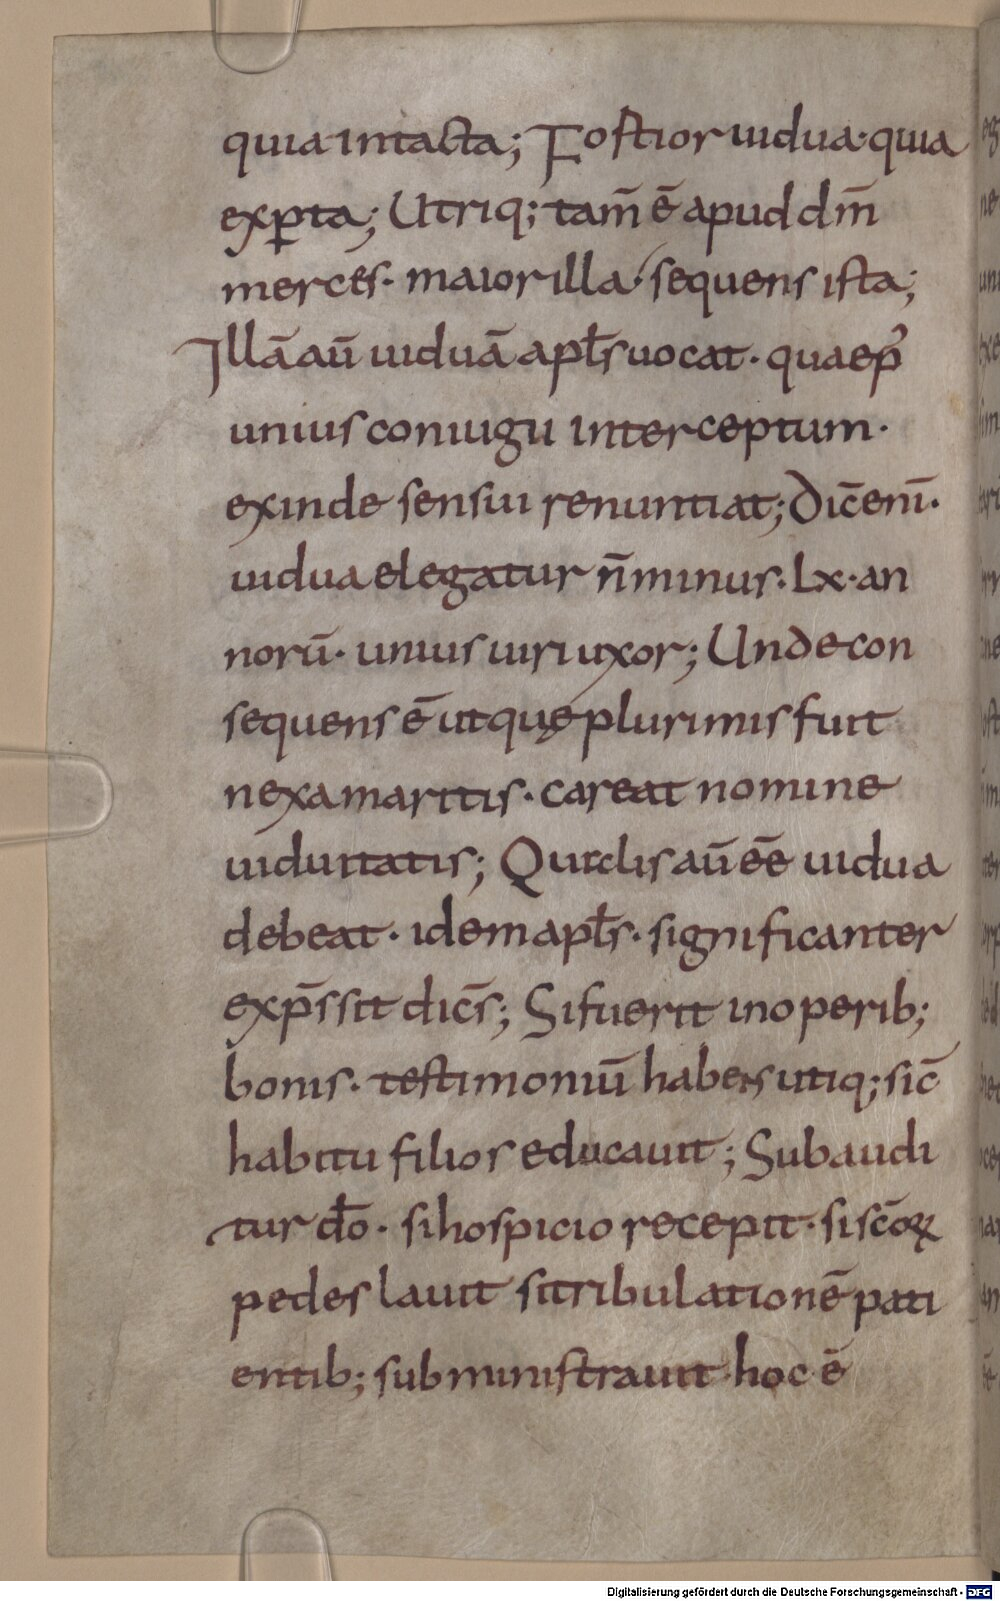 quia intacta; Fostior uidua· quia
exp̱ta; Utriq; tam̄ ē apud dm̄
merces· maior illa· sequens ista;
Illā aū uiduā apłs uocat· quae p̱
unius coniugii interceptum·
exinde sensui renuntiat; Dic̄ eni·
uidua elegatur n̄ minus· Lx· an
norū· unius uiri uxor; Unde con
sequens ē ut quę plurimis fuit
nexa maritis· careat nomine
uiduitatis; Qualis aū ēē uidua
debeat· idem apłs· significanter
exp̄ssit dic̄s; Si fuerit in operib;
bonis· testimoniū habens utiq; sic̄
habitu filios educauit; Subaudi
tur do̅· si hospicio recepit· si sc̄oꝝ
pedes lauit si tribulationē pati
entib; subministrauit· hoc ē
Digitalisierung gefördert durch die Deutsche Forschungsgemeinschaft - DFG